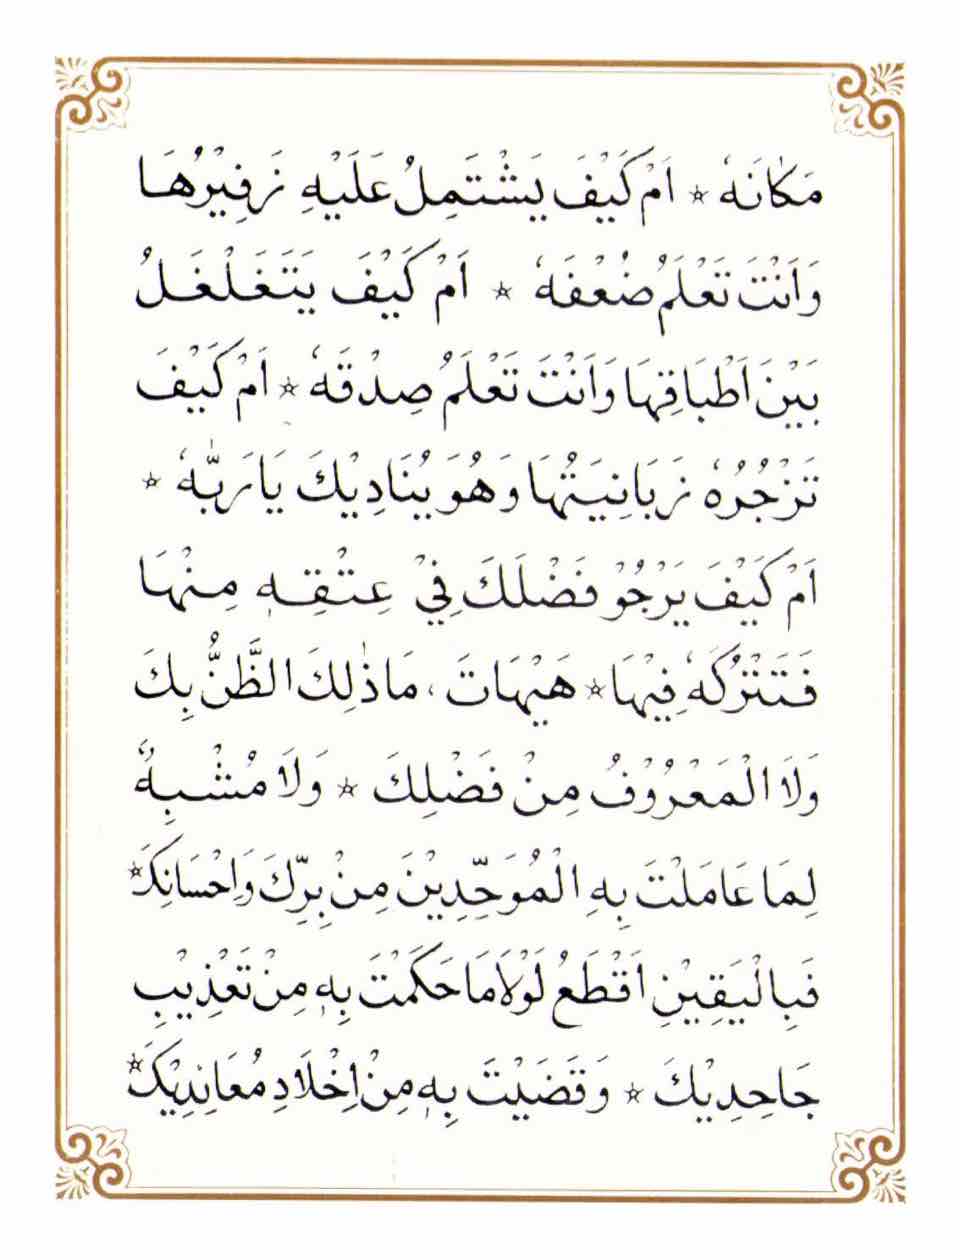 مَكَانَهٗ ☆ اَمْ كَيْفَ يَشْتَمِلُ عَلَيْهِ زَفِيْرُهَا
وَاَنْتَ تَعْلَمُ ضُعْفَهٗ ☆ اَمْ كَيْفَ يَتَغَلْغَلُ
بَيْنَ اَطْبَاقِهَا وَاَنْتَ تَعْلَمُ صِدْقَهٗ ☆ اَمْ كَيْفَ
تَزْجُرُهٗ زَبَانِيَتُهَا وَهُوَ يُنَادِيْكَ يَا رَبَّهٗ ☆
اَمْ كَيْفَ يَرْجُوْ فَضْلَكَ فِيْ عِتْقِهٖ مِنْهَا
فَتَتْرُكَهٗ فِيْهَا ☆ هَيْهَاتَ، مَا ذٰلِكَ الظَّنُّ بِكَ
وَلَا الْمَعْرُوْفُ مِنْ فَضْلِكَ ☆ وَلَا مُشْبِهٌ
لِمَا عَامَلْتَ بِهِ الْمُوَحِّدِيْنَ مِنْ بِرِّكَ وَاِحْسَانِكَ ☆
فَبِالْيَقِيْنِ اَقْطَعُ لَوْلَا مَا حَكَمْتَ بِهٖ مِنْ تَعْذِيْبِ
جَاحِدِيْكَ ☆ وَقَضَيْتَ بِهٖ مِنْ اِخْلَادِ مُعَانِدِيْكَ ☆